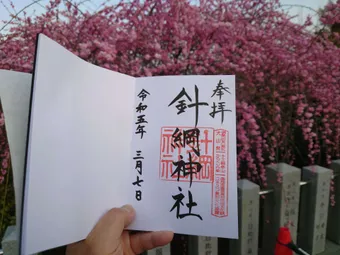 奉拝
針綱神社
令和五年 三月七日